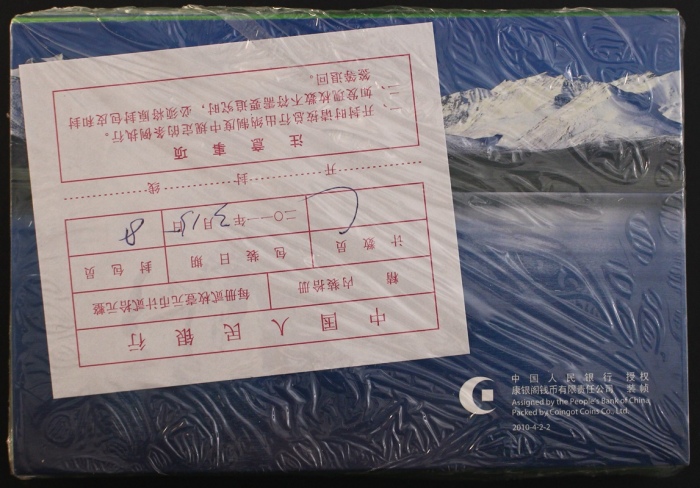 中国人民银行
精 内装拾册 每册贰枚壹元币计贰拾元整
计数员 包装日期 封包员
二〇一一年3月15日
开封线
注意事项
一、开封时请按总行出纳制度中规定的条例执行。
二、如发现枚数不符需要追究时，必须将原封包皮和封
签等退回。
中国人民银行 授权
康银阁钱币有限责任公司 装帧
Assigned by the People's Bank of China,
Packed by Coingot Coins Co., Ltd.
2010-4-2-2